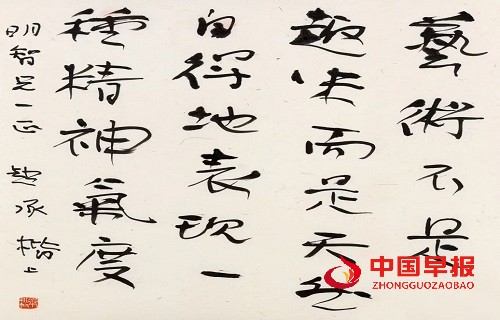 藝術不是
趣味而是天然
自得地表现一
種精神氣度
明智兄一正 趙承楷上
中国早报
ZHONGGUOZAOBAO